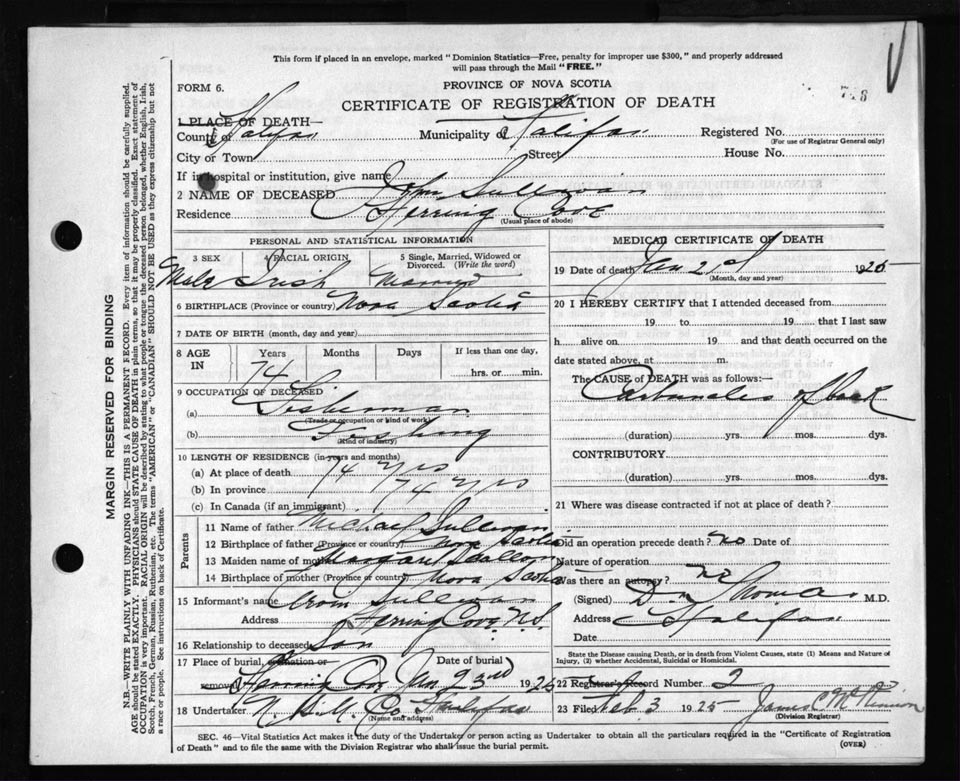 This form if placed in an envelope, marked "Dominion Statistics—Free, penalty for improper use $300," and properly addressed
will pass through the Mail "FREE."
FORM 6.
PROVINCE OF NOVA SCOTIA
CERTIFICATE OF REGISTRATION OF DEATH
1 PLACE OF DEATH—
County of Halifax Municipality of Halifax Registered No.
(For use of Registrar General only)
City or Town Street House No.
If in hospital or institution, give name
2 NAME OF DECEASED John Sullivan
Residence Herring Cove
(Usual place of abode)
PERSONAL AND STATISTICAL INFORMATION
3 SEX 4 RACIAL ORIGIN 5 Single, Married, Widowed or Divorced. (Write the word)
Male Irish Married
6 BIRTHPLACE (Province or country) Nova Scotia
7 DATE OF BIRTH (month, day and year)
8 AGE IN Years Months Days If less than one day,
74 hrs. or min.
9 OCCUPATION OF DECEASED
(a) Fisherman
(Trade or occupation or kind of work)
(b) Fishing
(Kind of industry)
10 LENGTH OF RESIDENCE (in years and months)
(a) At place of death 74 yrs
(b) In province 74 yrs
(c) In Canada (if an immigrant)
Parents
11 Name of father Michael Sullivan
12 Birthplace of father (Province or country) Nova Scotia
13 Maiden name of mother Margaret
14 Birthplace of mother (Province or country) Nova Scotia
15 Informant's name Sullivan
Address Herring Cove N.S.
16 Relationship to deceased Son
17 Place of burial, cremation or removal Herring Cove Date of burial Jan 23rd 1925
18 Undertaker Co Halifax
(Name and address)
MEDICAL CERTIFICATE OF DEATH
19 Date of death Jan 21st 1925
(Month, day and year)
20 I HEREBY CERTIFY that I attended deceased from
19 to 19 that I last saw
h alive on 19 and that death occurred on the
date stated above, at m.
The CAUSE of DEATH was as follows:—
Carbuncles of back
(duration) yrs. mos. dys.
CONTRIBUTORY
(duration) yrs. mos. dys.
21 Where was disease contracted if not at place of death?
Did an operation precede death? no Date of
Nature of operation
Was there an autopsy? no
(Signed) Thomas M.D.
Address Halifax
Date
State the Disease causing Death, or in death from Violent Causes, state (1) Means and Nature of Injury, (2) whether Accidental, Suicidal or Homicidal.
22 Registrar's Record Number 2
23 Filed Feb 3 1925 James C
(Division Registrar)
SEC. 46—Vital Statistics Act makes it the duty of the Undertaker or person acting as Undertaker to obtain all the particulars required in the "Certificate of Registration
of Death" and to file the same with the Division Registrar who shall issue the burial permit.
(OVER)
MARGIN RESERVED FOR BINDING
N.B.—WRITE PLAINLY WITH UNFADING INK—THIS IS A PERMANENT RECORD. Every item of information should be carefully supplied.
AGE should be stated EXACTLY. PHYSICIANS should STATE CAUSE OF DEATH in plain terms, so that it may be properly classified. Exact statement of
OCCUPATION is very important. RACIAL ORIGIN will be described by stating to what people or tongue the deceased person belonged, whether English, Irish,
Scotch, French, German, Russian, Ruthenian, etc. The terms "AMERICAN" or "CANADIAN" SHOULD NOT BE USED as they express citizenship but not
a race or people. See instructions on back of Certificate.